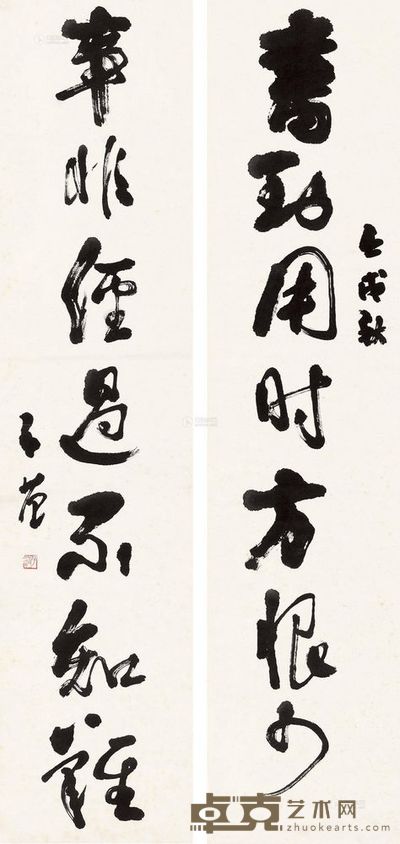 壬戌秋
書到用时方恨少
事非經過不知難
卓克艺术网
zhuokearts.com